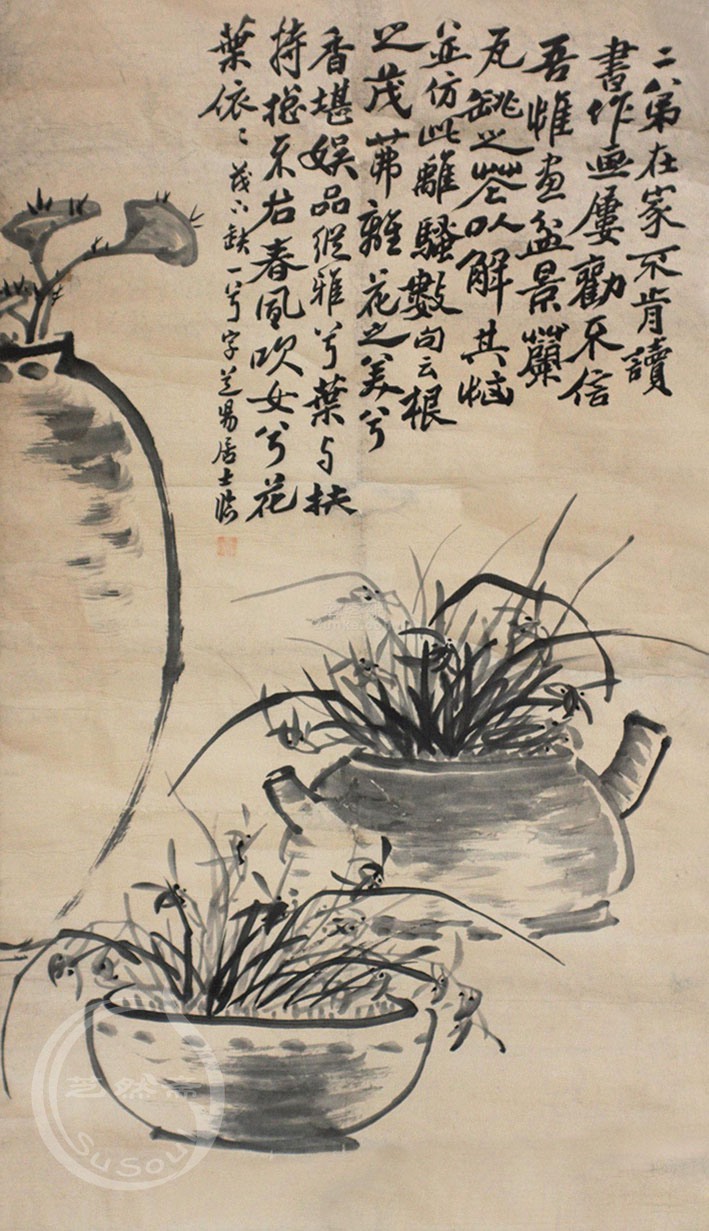 二八弟在家不肯讀
書作画屢勸不信
吾惟画盆景蘭
瓦缽之塋以解其惱
並仿此離騷數句云根
之茂茀離花之美兮
香堪娛品從雅兮葉与扶
持撼不右春風吹女兮花
葉依〻茂下缺一兮字芝易居士临
芝然斋
SuSou